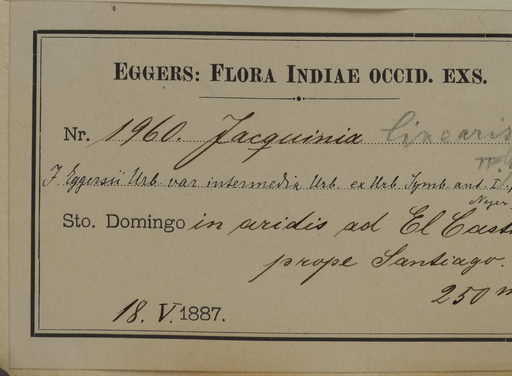 EGGERS: FLORA INDIAE OCCID. EXS.
Nr. 1960. Jacquinia linearis
J. Eggersii Urb. var intermedia Urb. ex Urb. Symb. ant. I.
Sto. Domingo in aridis ad El Cast
prope Santiago.
250 m
18. V. 1887.